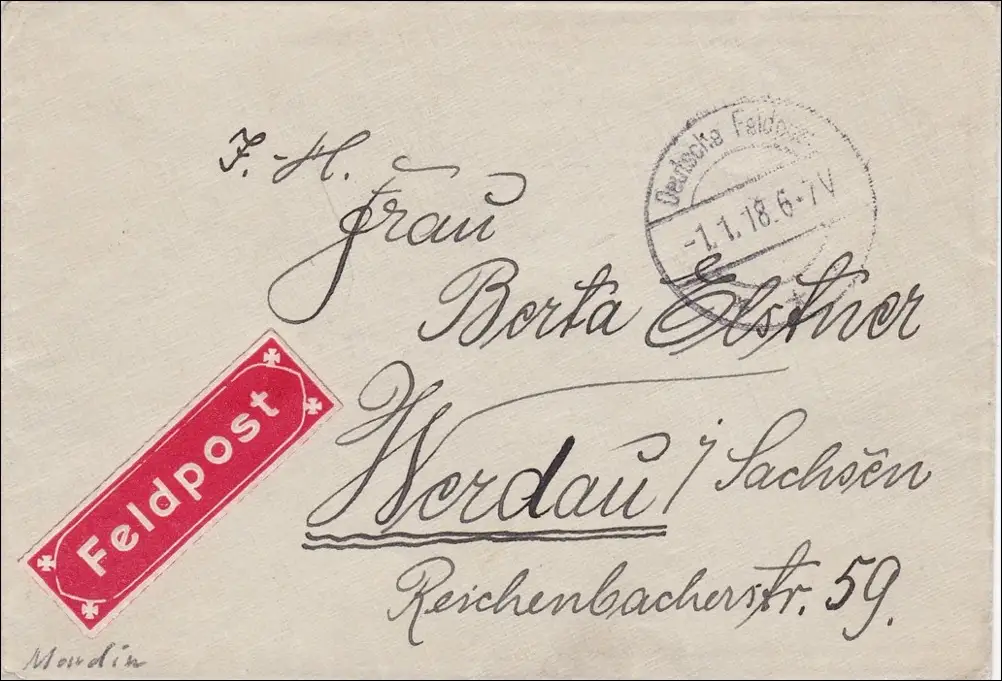 Deutsche Feldpost
-1.1.18.6-7V
F. H.
Frau
Berta Elstner
Werdau i/ Sachsen
Reichenbacherstr. 59.
Feldpost